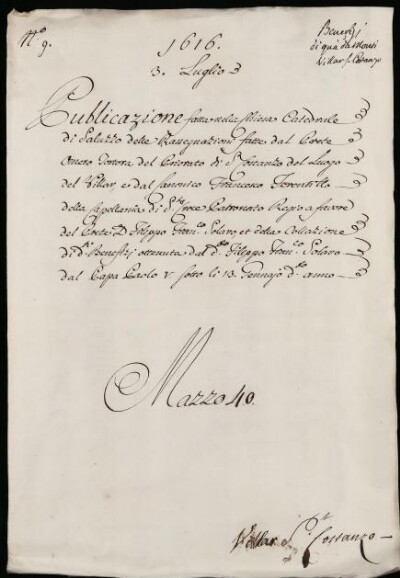 N.º 9.
Benefizj
di quà da Monti
Villar S. Costanzo
1616.
3. Luglio
Publicazione fatta nella Chiesa Catedrale
di Saluzzo delle Rassegnazioni fatte dal Prete
del Priorato di S. Costanzo del Luogo
del Villar, e dal Canonico Francesco
della Capellania di S.ta Croce Patronato Regio a favore
del Prete D. Filippo Fran.co Solaro, et della Collazione
di d.i Benefizj ottenuta dal d.to Filippo Fran.co Solaro
dal Papa Paolo V. sotto li 13. Gennajo d.to anno
Mazzo 40.
Villar S.t Costanzo